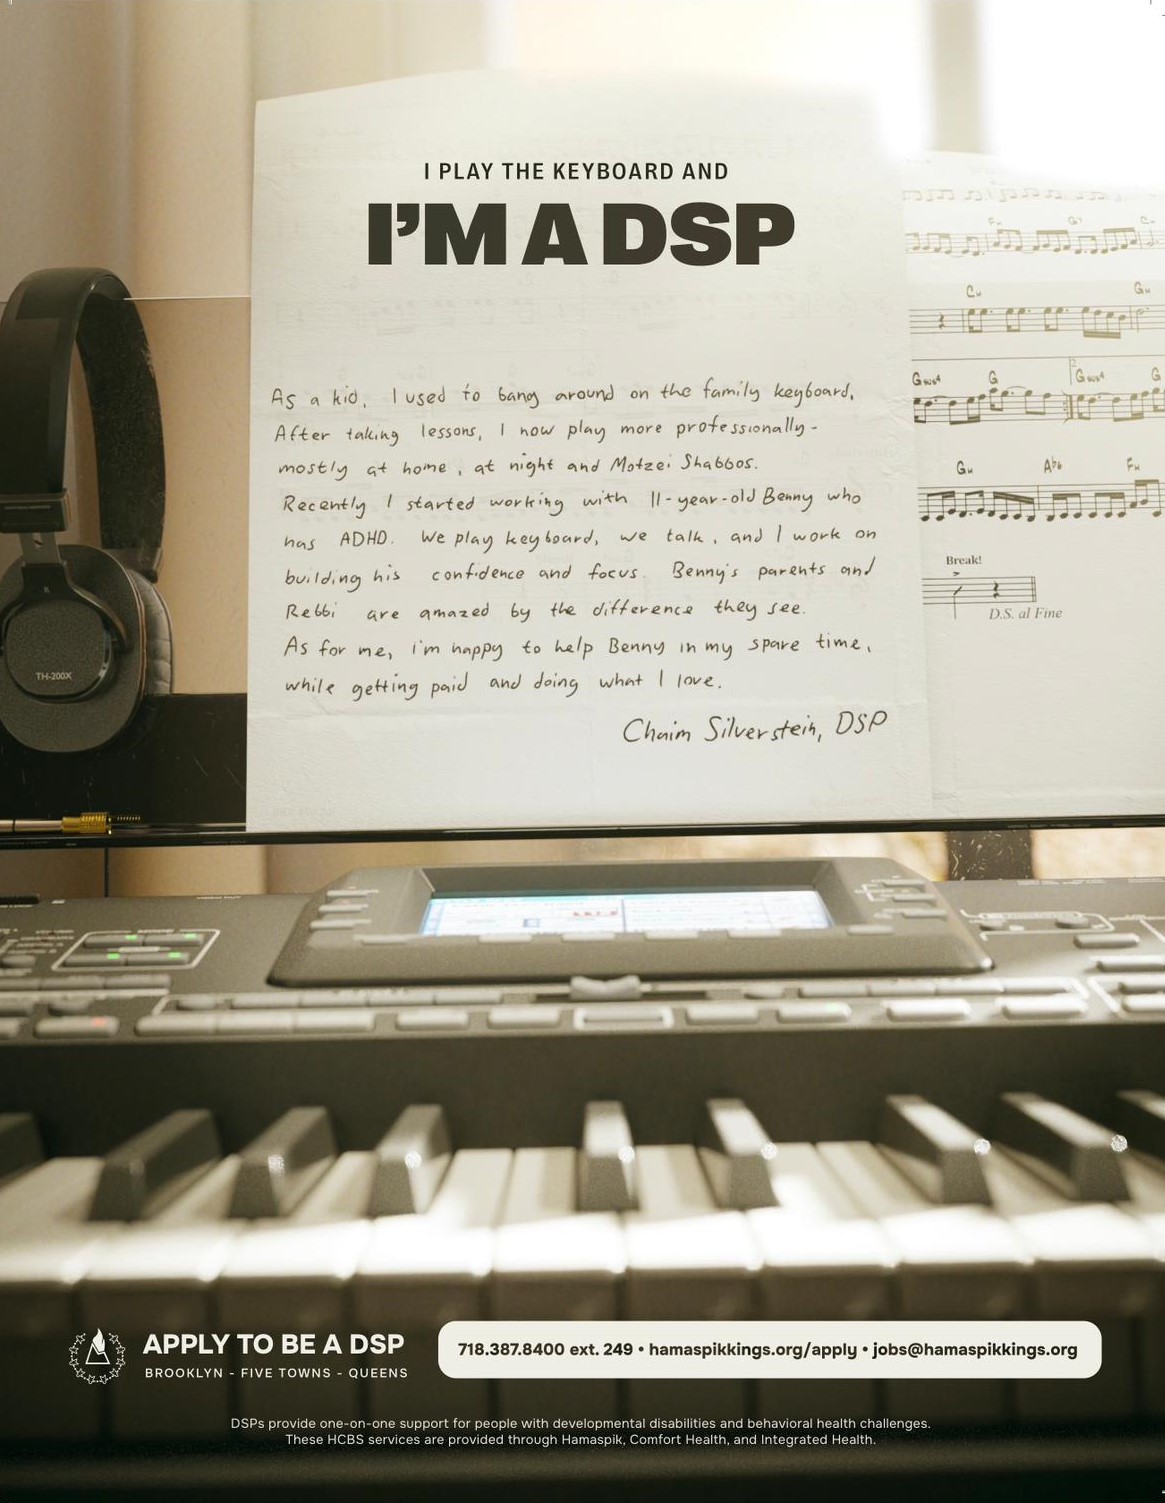 I PLAY THE KEYBOARD AND
I'M A DSP
As a kid, I used to bang around on the family keyboard,
After taking lessons, I now play more professionally -
mostly at home, at night and Motzei Shabbos.
Recently I started working with 11-year-old Benny who
has ADHD. We play keyboard, we talk, and I work on
building his confidence and focus. Benny's parents and
Rebbi are amazed by the difference they see.
As for me, i'm happy to help Benny in my spare time,
while getting paid and doing what I love.
Chaim Silverstein, DSP
TH-200X
Cm Gm
Gsus4 G Gsus4 G
Gm Ab6 Fm
Break!
D.S. al Fine
APPLY TO BE A DSP
BROOKLYN - FIVE TOWNS - QUEENS
718.387.8400 ext. 249 • hamaspikkings.org/apply • jobs@hamaspikkings.org
DSPs provide one-on-one support for people with developmental disabilities and behavioral health challenges.
These HCBS services are provided through Hamaspik, Comfort Health, and Integrated Health.